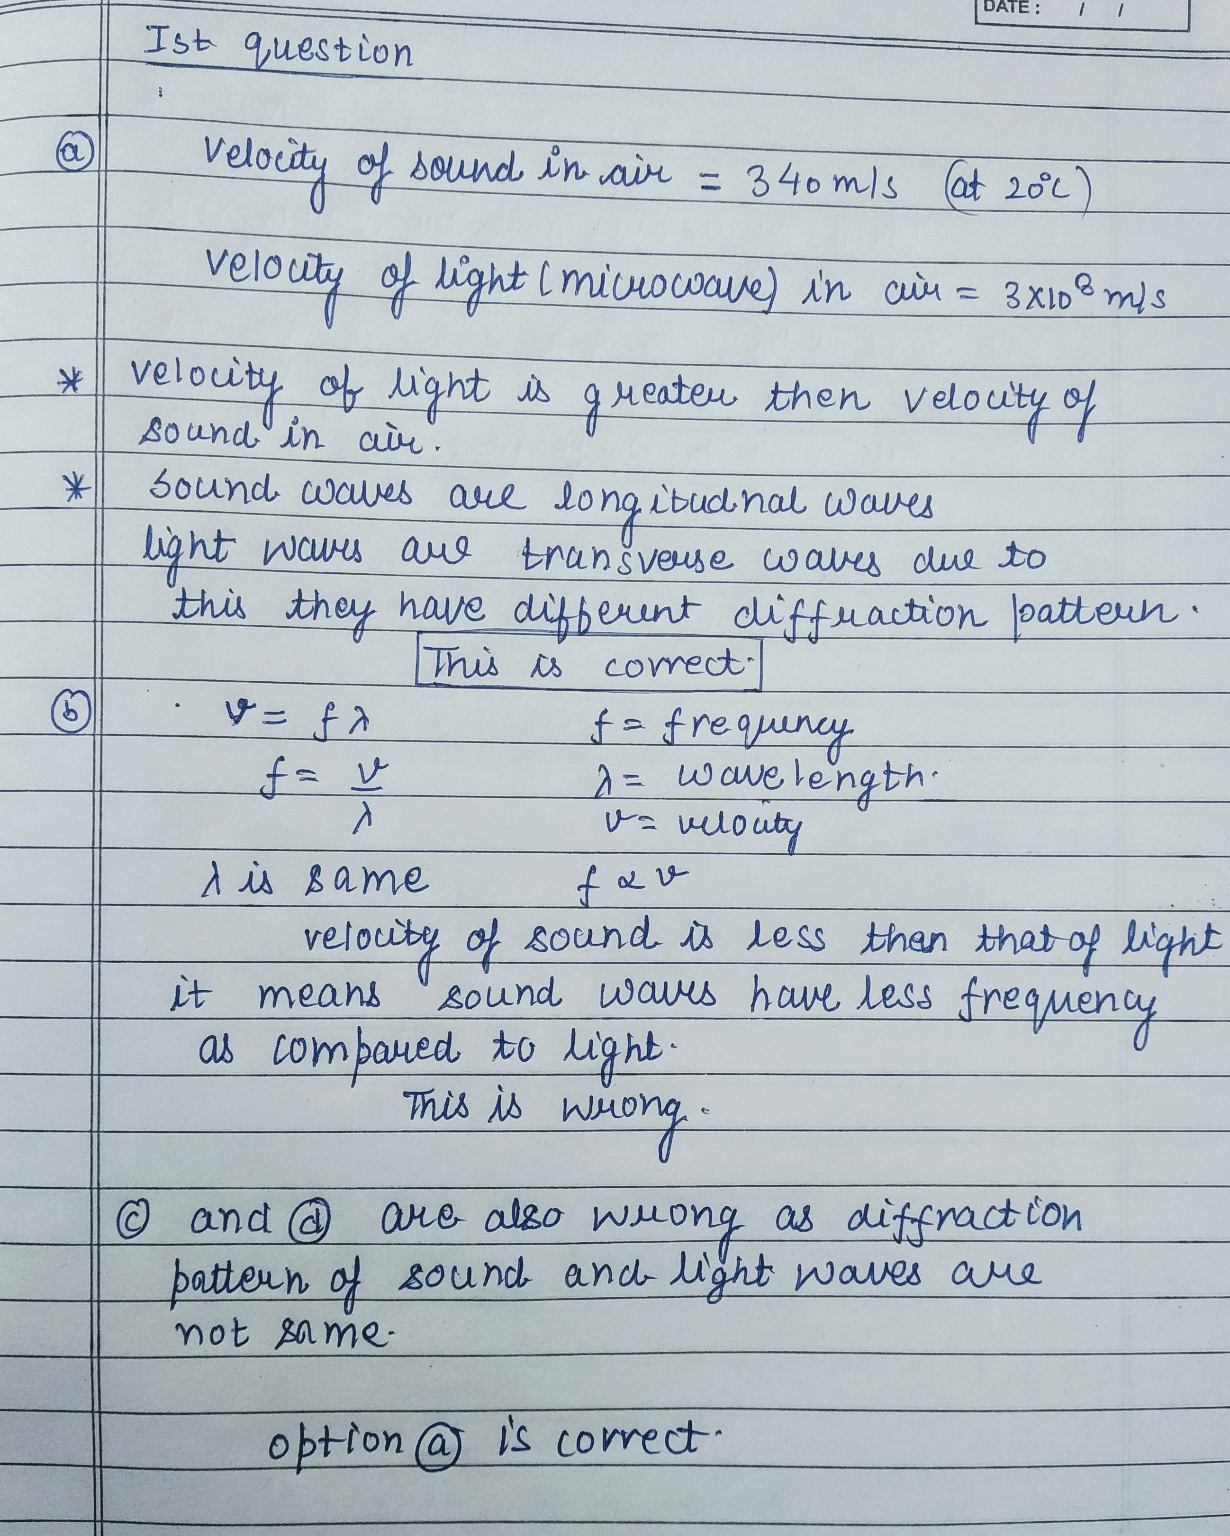 DATE: / /
Ist question
ⓐ Velocity of sound in air = 340 m/s (at 20°C)
Velocity of light (microwave) in air = 3x10⁸ m/s
* Velocity of light is greater then velocity of
sound in air.
* Sound waves are longitudnal waves
light waves are transverse waves due to
this they have different diffraction pattern.
This is correct.
ⓑ v = fλ f = frequency
f = v/λ λ = wavelength.
v = velocity
λ is same f ∝ v
velocity of sound is less then that of light
it means sound waves have less frequency
as compared to light.
This is wrong.
ⓒ and ⓓ are also wrong as diffraction
pattern of sound and light waves are
not same.
option ⓐ is correct.